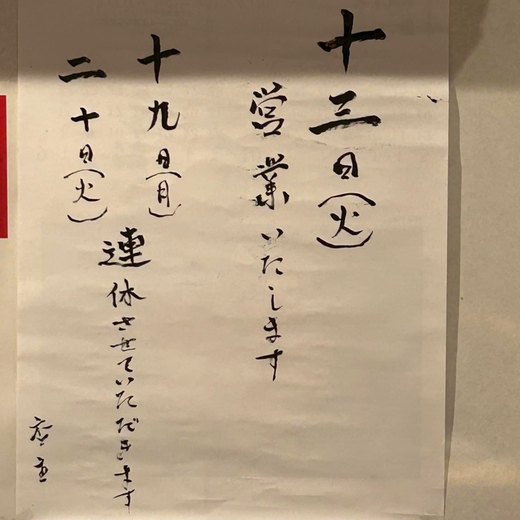 十三日(火)
営業いたします
十九日(月)
二十日(火)
連休させていただきます
店主